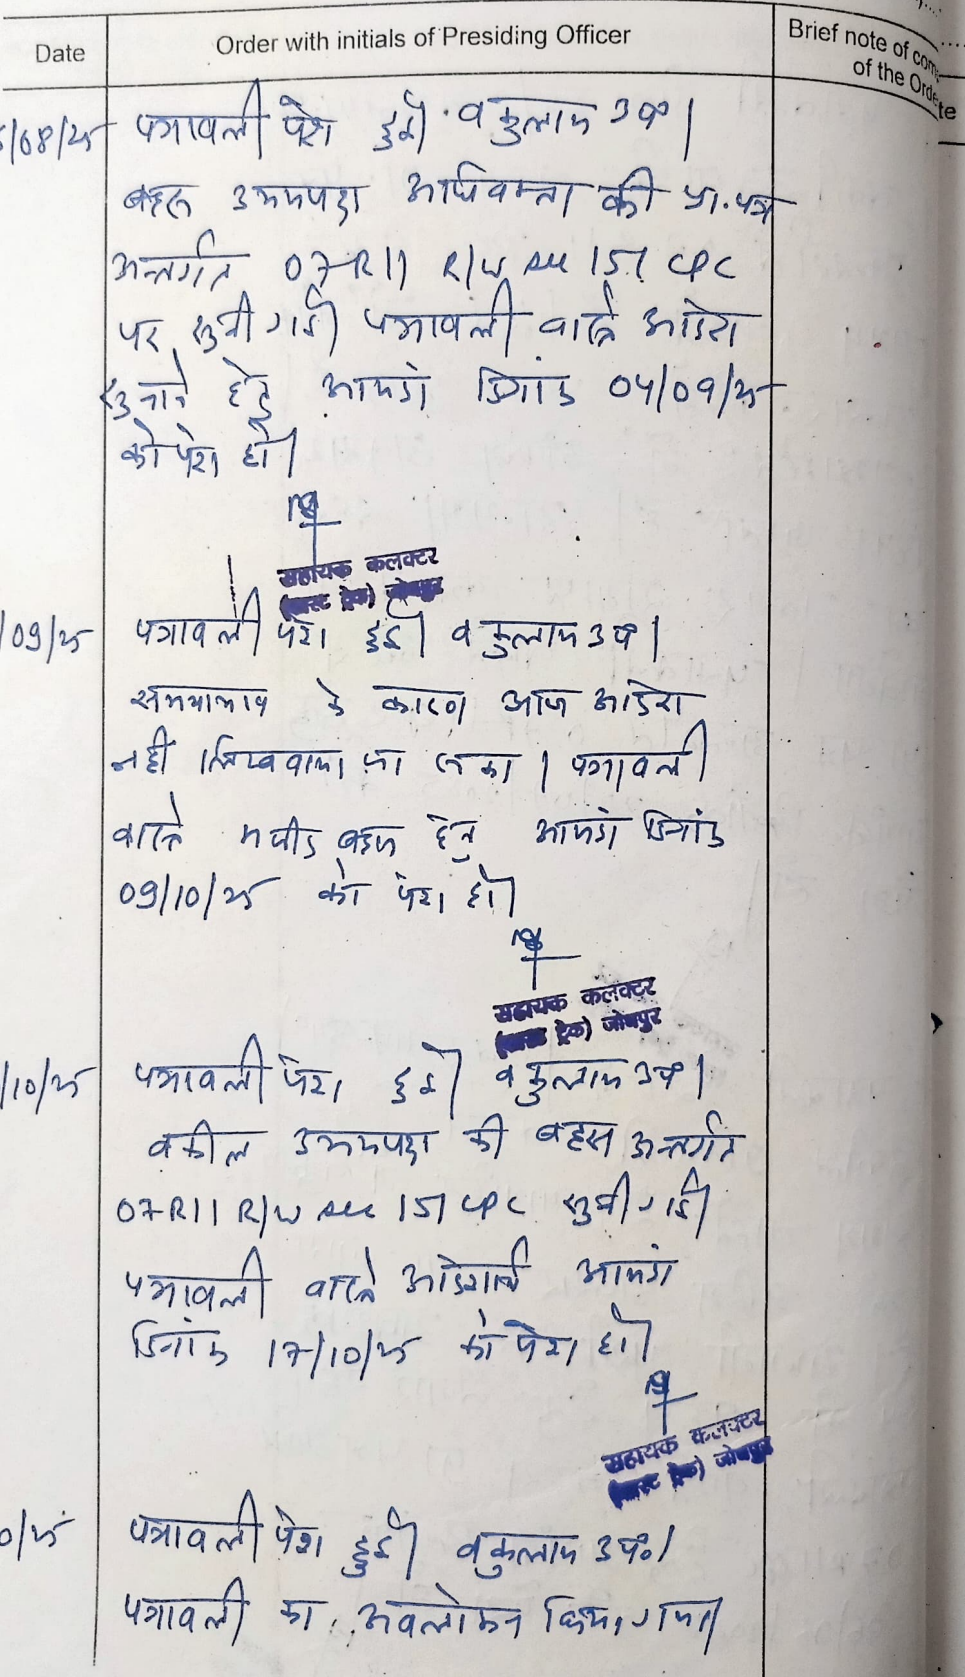 Date
Order with initials of Presiding Officer
Brief note of com
of the Orde
te
/08/25
पत्रावली पेश हुई। वकुलाय उप।
बहस उभयपक्ष अधिवक्ता की प्रा. पत्र
अन्तर्गत 07R11 R/w sec 151 CPC
पर सुनी गई। पत्रावली वास्ते आदेश
सुनाने हेतु आयंदा दिनांक 04/09/25
को पेश हो।
सहायक कलक्टर
(फास्ट ट्रेक) जोधपुर
/09/25
पत्रावली पेश हुई। वकुलाय उप।
समयाभाव के कारण आज आदेश
नही लिखवाया जा सका। पत्रावली
वास्ते मजीद बहस हेतु आयंदा दिनांक
09/10/25 को पेश हो।
सहायक कलक्टर
(फास्ट ट्रेक) जोधपुर
/10/25
पत्रावली पेश हुई। वकुलाय उप।
वकील उभयपक्ष की बहस अन्तर्गत
07R11 R/w sec 151 CPC सुनी गई।
पत्रावली वास्ते आदेशार्थ आयंदा
दिनांक 17/10/25 को पेश हो।
सहायक कलक्टर
(फास्ट ट्रेक) जोधपुर
0/25
पत्रावली पेश हुई। वकुलाय उप०।
पत्रावली का अवलोकन किया गया।